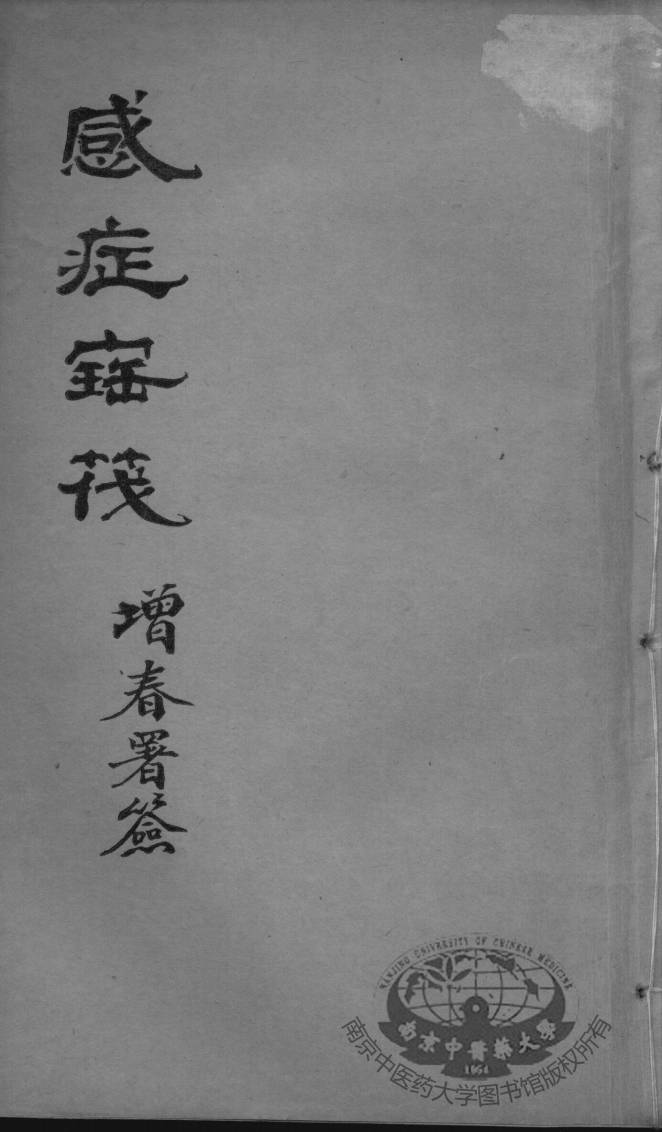 感症寚筏
增春署签
NANJING UNIVERSITY OF CHINESE MEDICINE
南京中醫藥大學
1954
南京中医药大学图书馆版权所有